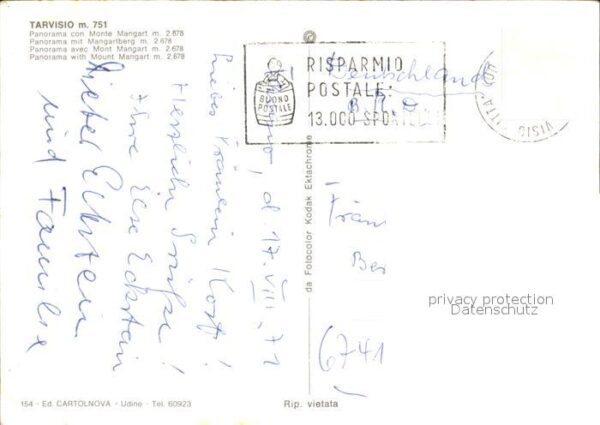 TARVISIO m. 751
Panorama con Monte Mangart m. 2.678
Panorama mit Mangartberg m. 2.678
Panorama avec Mont Mangart m. 2.678
Panorama with Mount Mangart m. 2.678
d. 17. VIII. 71
Liebes Fräulein Kost!
Herzliche Grüße!
Ihre Else Eckstein
Dieter Eckstein
und Familie
BUONO
POSTALE
RISPARMIO
POSTALE:
13.000 SPORTELLI
Deutschland
B.R.D.
da Fotocolor Kodak Ektachrome
Fräu
Bei
6741
privacy protection
Datenschutz
154 - Ed. CARTOLNOVA - Udine - Tel. 60923
Rip. vietata